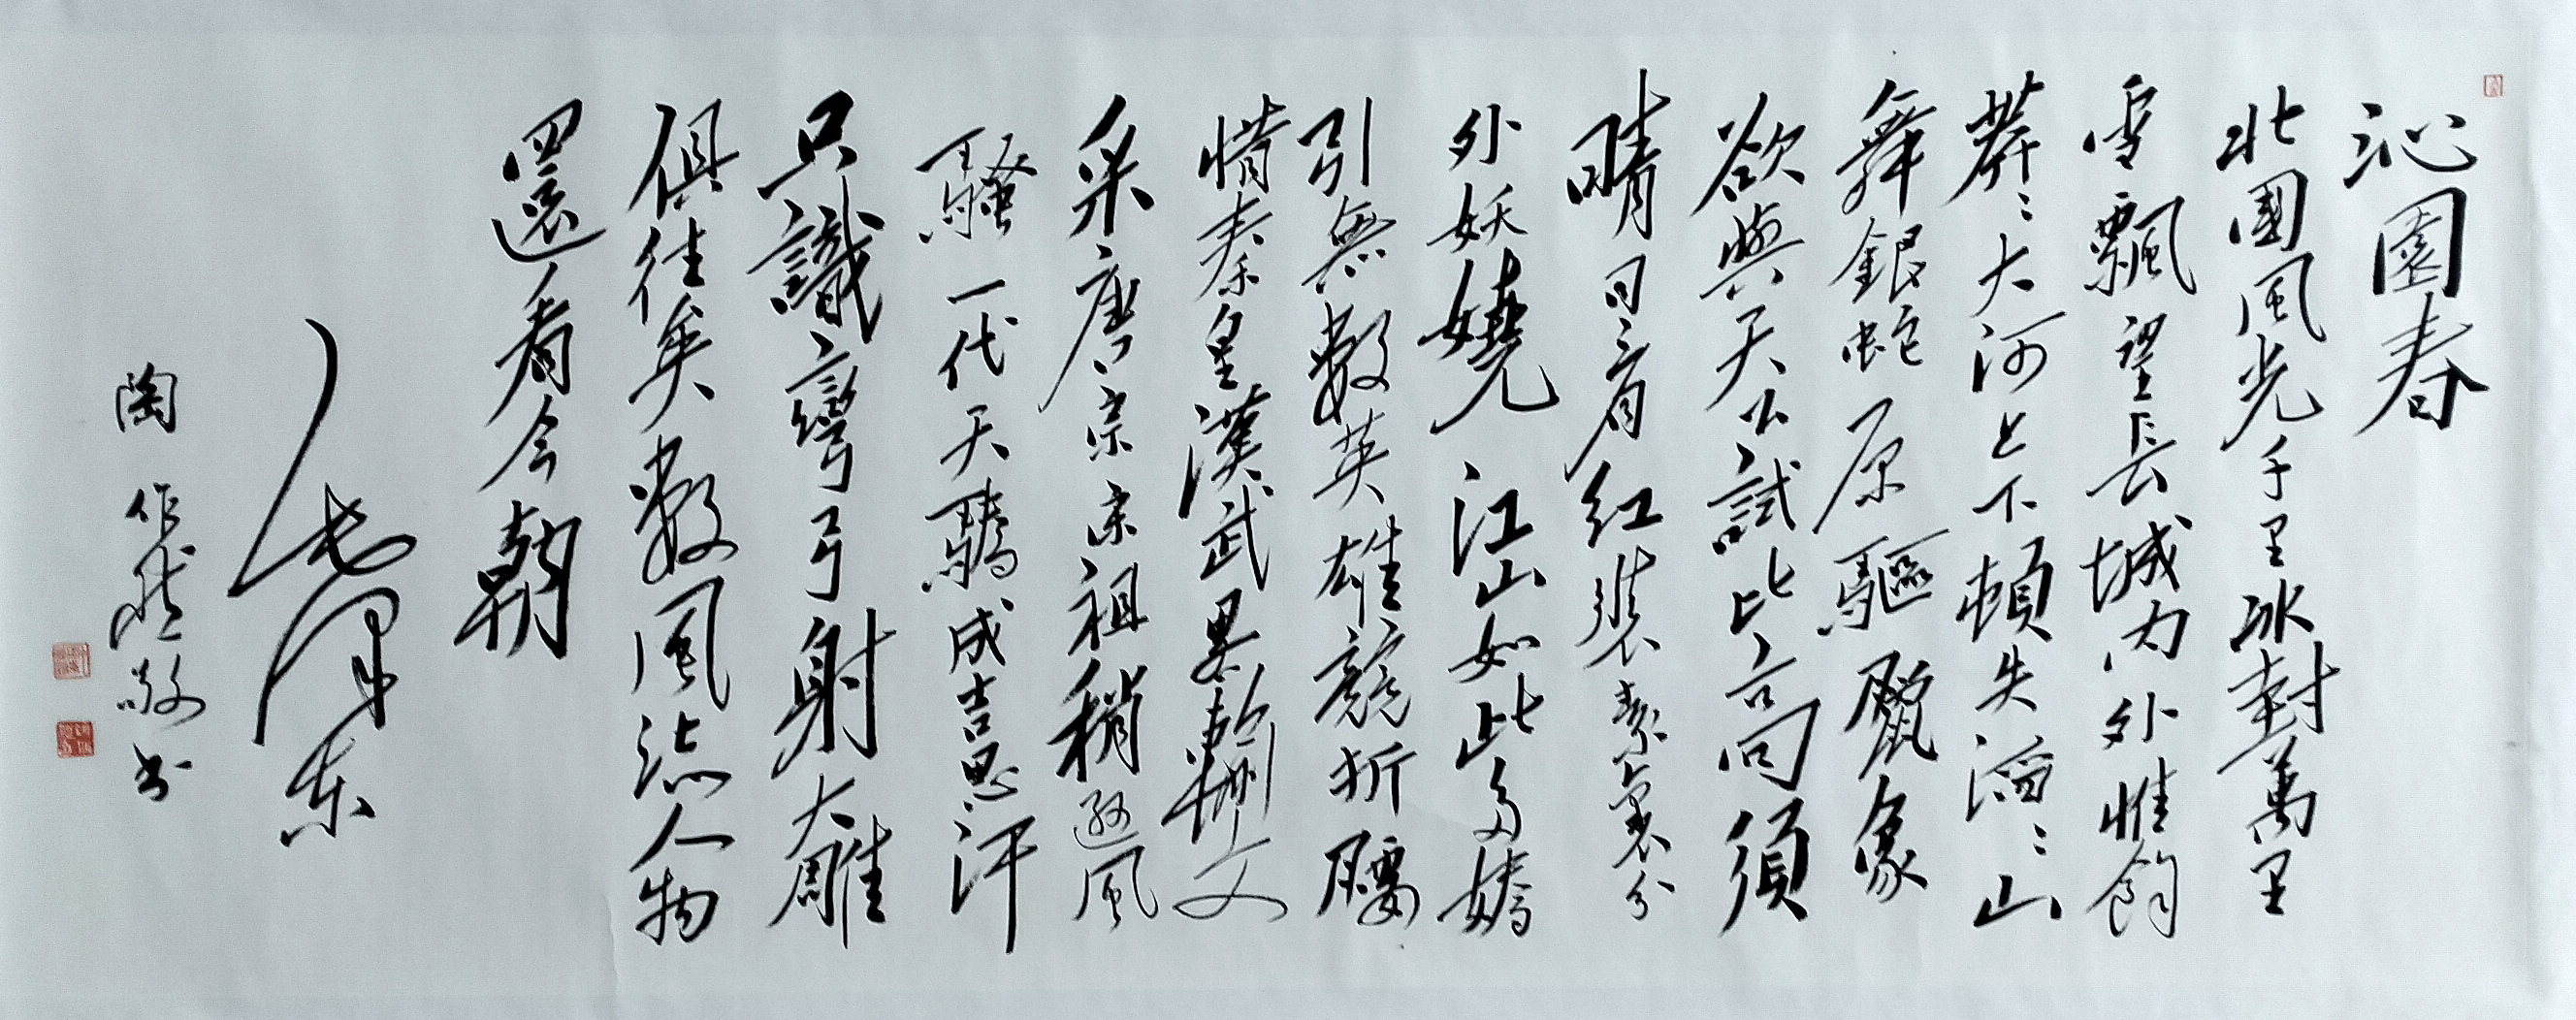 沁園春
北國風光千里冰封萬里
雪飄望長城内外惟餘
莽〻大河上下頓失滔〻山
舞銀蛇原驅臘象
欲與天公試比高須
晴日看紅裝素裹分
外妖嬈江山如此多嬌
引無數英雄競折腰
惜秦皇漢武畧輸文
采唐宗宋祖稍遜風
騷一代天驕成吉思汗
只識彎弓射大雕
俱往矣數風流人物
還看今朝
毛澤东
陶作敬书